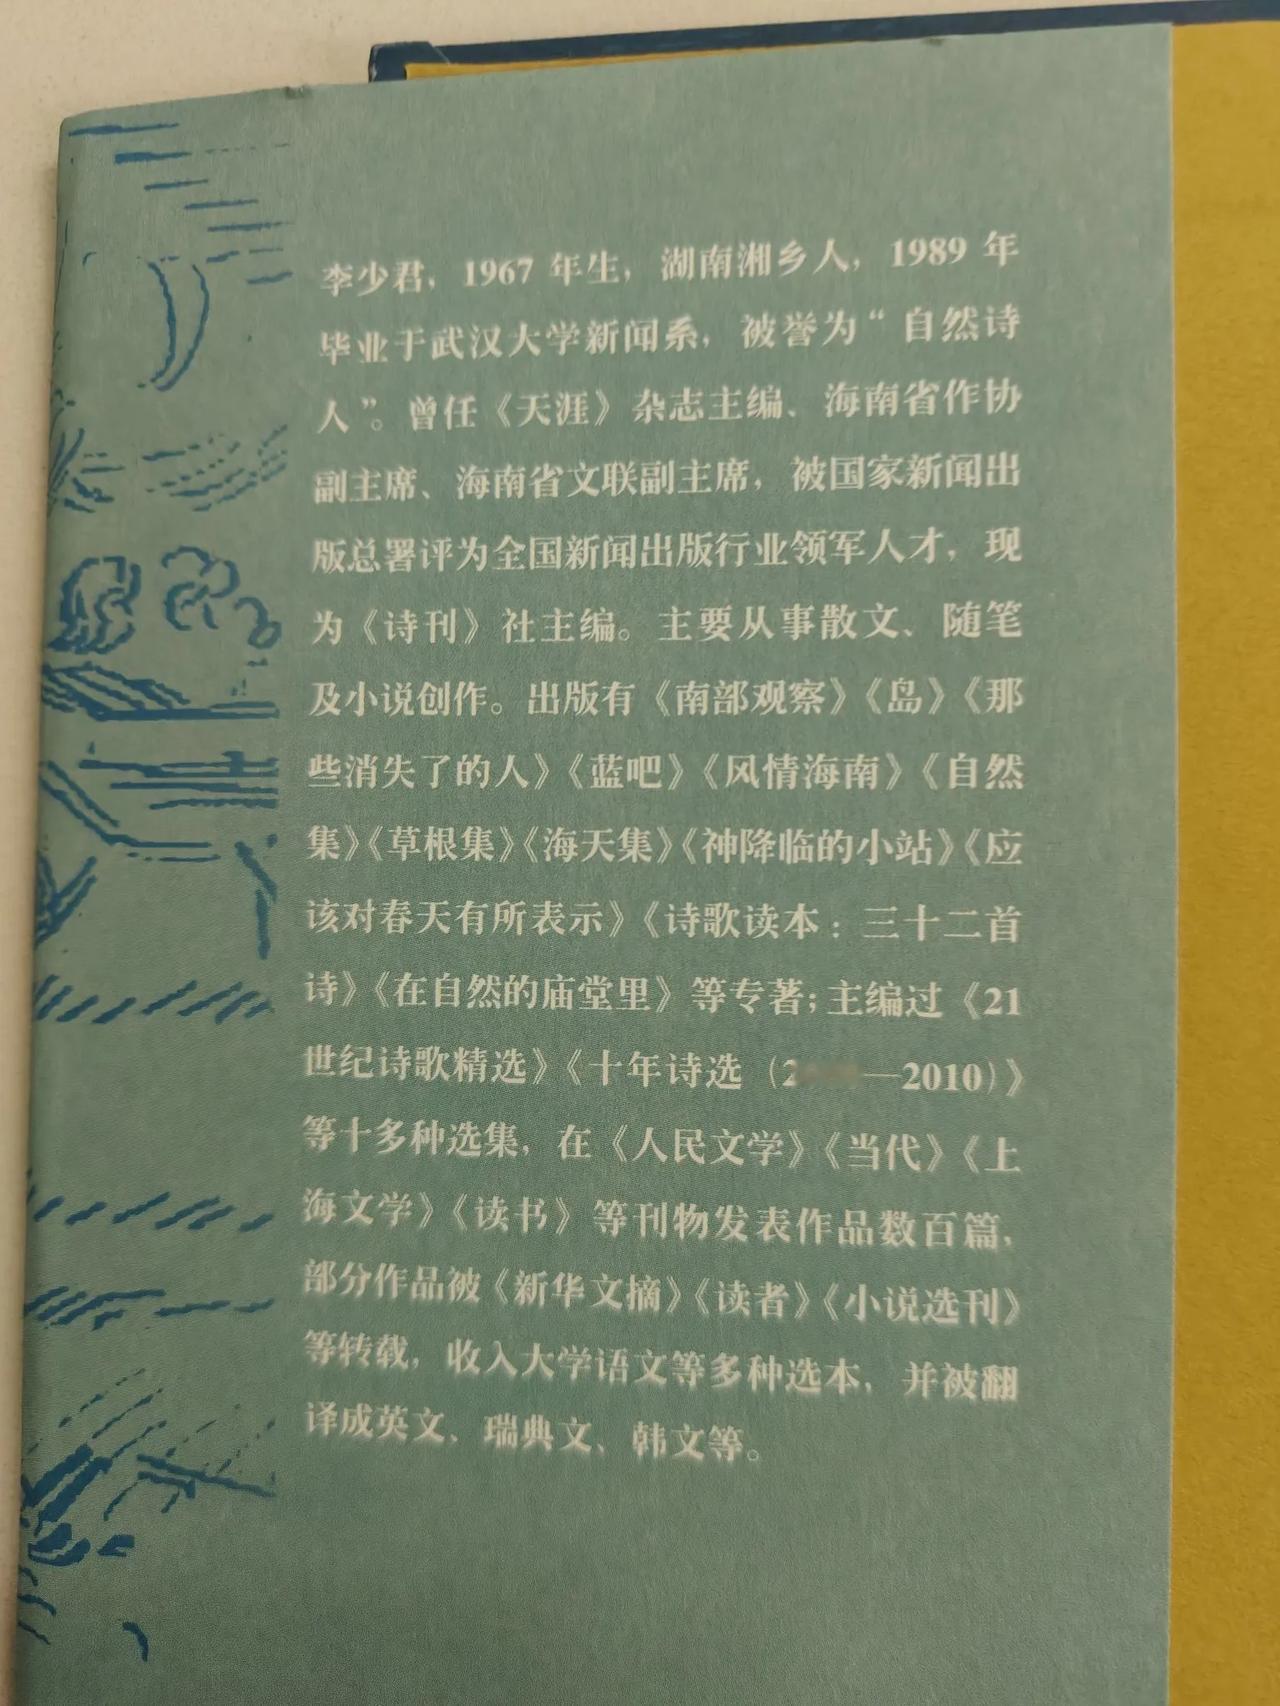 李少君，1967 年生，湖南湘乡人，1989 年
毕业于武汉大学新闻系，被誉为“自然诗
人”。曾任《天涯》杂志主编、海南省作协
副主席、海南省文联副主席，被国家新闻出
版总署评为全国新闻出版行业领军人才，现
为《诗刊》社主编。主要从事散文、随笔
及小说创作。出版有《南部观察》《岛》《那
些消失了的人》《蓝吧》《风情海南》《自然
集》《草根集》《海天集》《神降临的小站》《应
该对春天有所表示》《诗歌读本：三十二首
诗》《在自然的庙堂里》等专著；主编过《21
世纪诗歌精选》《十年诗选（2—2010）》
等十多种选集，在《人民文学》《当代》《上
海文学》《读书》等刊物发表作品数百篇，
部分作品被《新华文摘》《读者》《小说选刊》
等转载，收入大学语文等多种选本，并被翻
译成英文、瑞典文、韩文等。